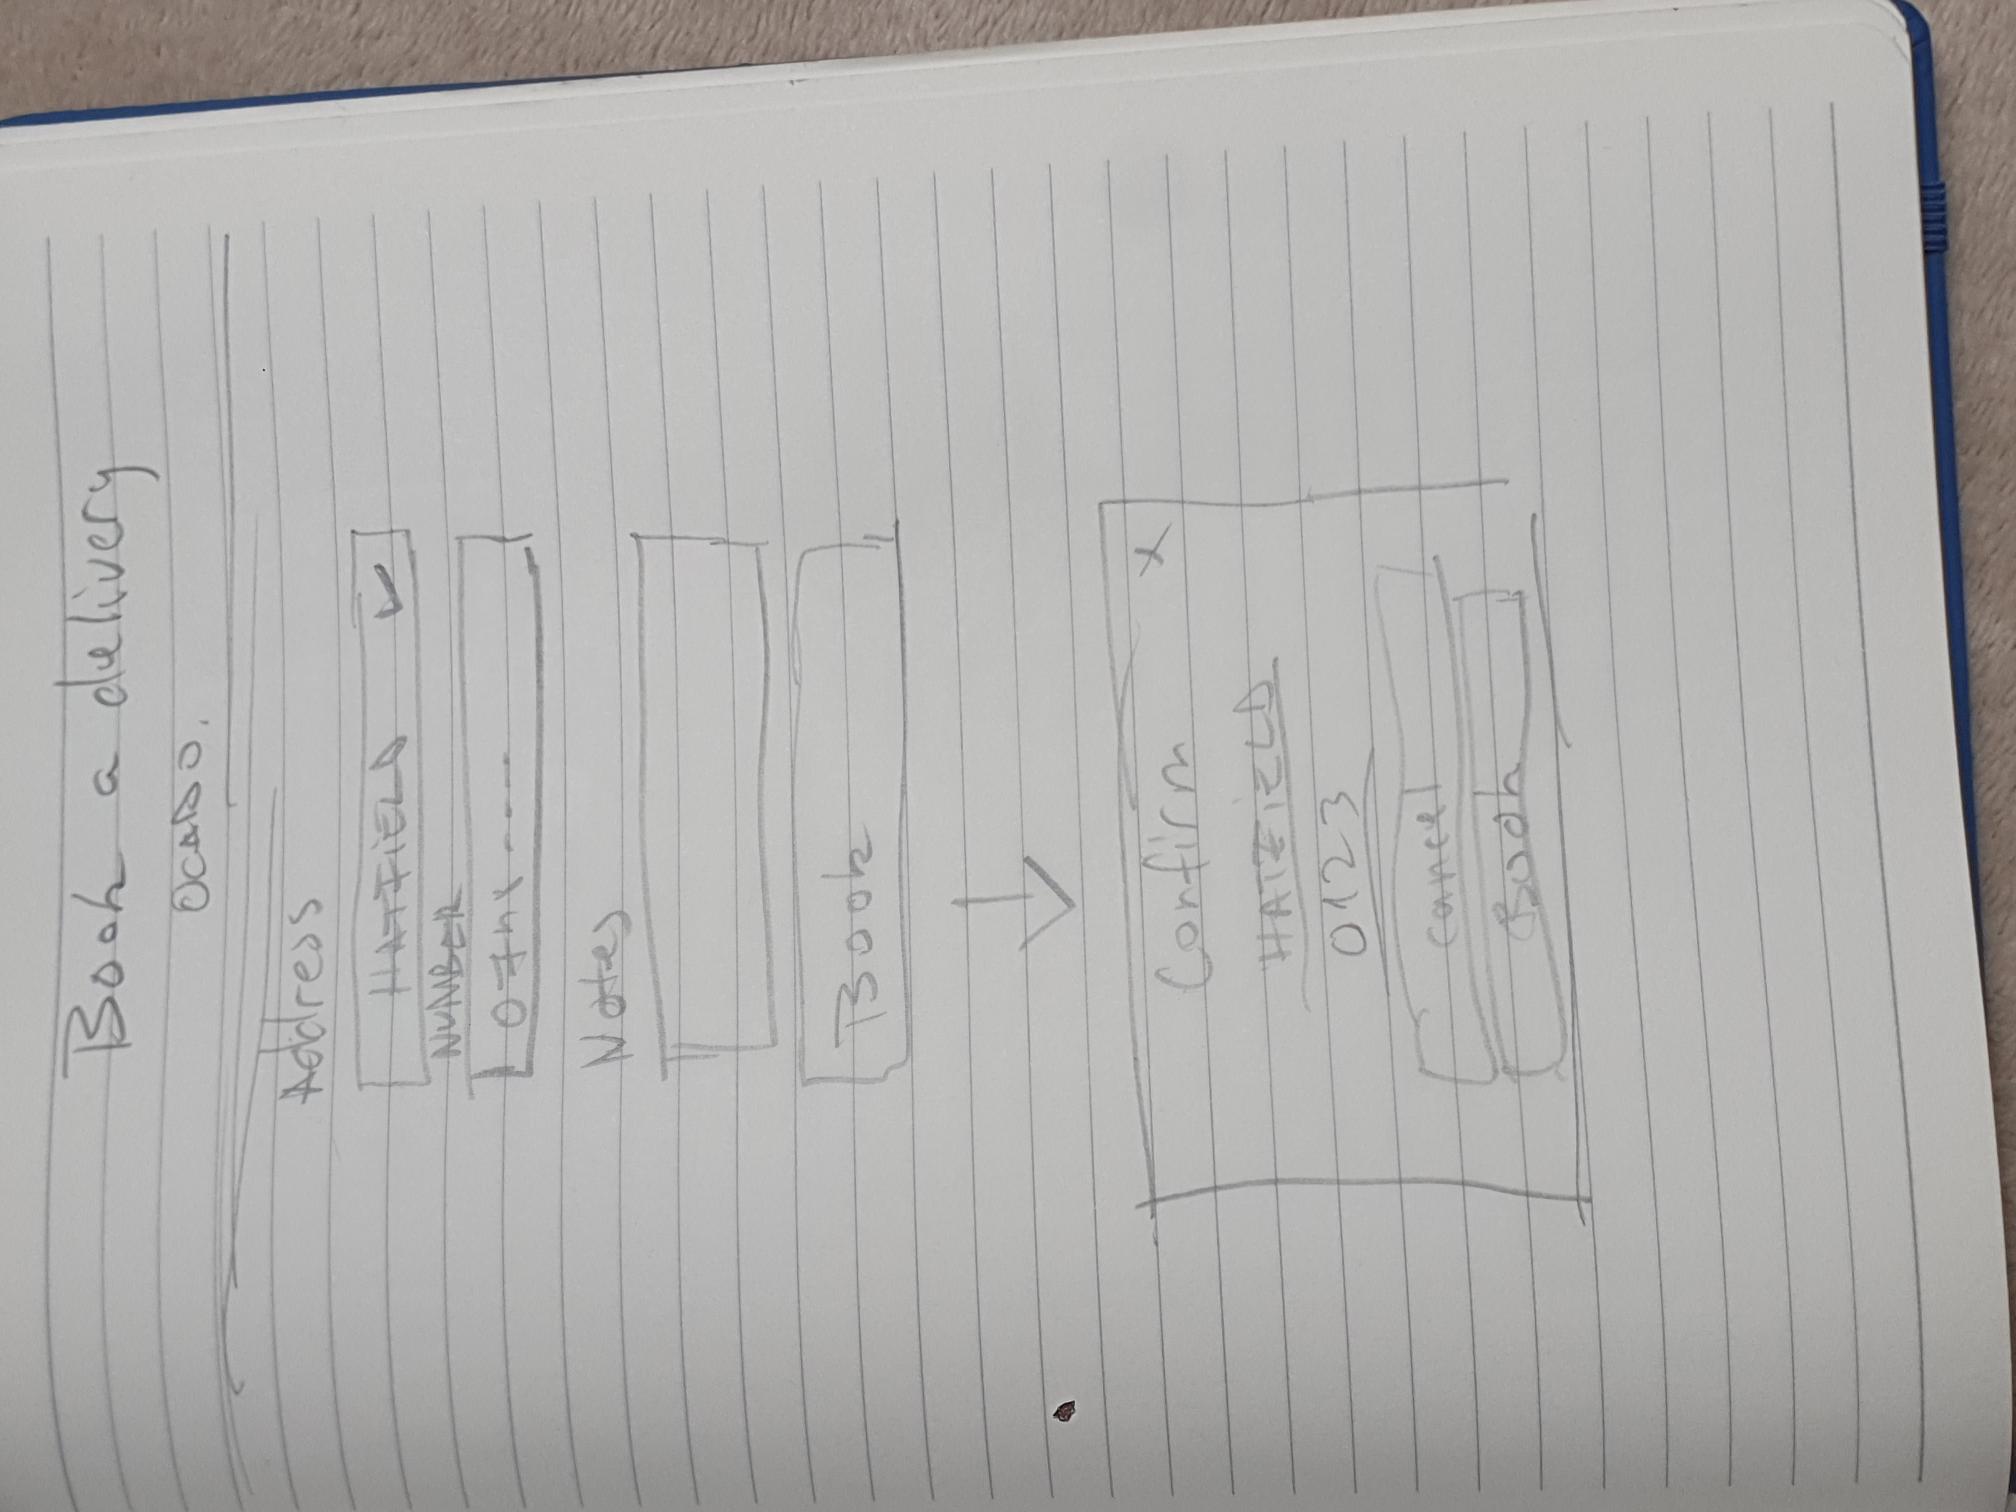 Book a delivery
OCADO.
Address
HATFIELD
NUMBER
Notes
Book
Confirm X
HATFIELD
0123
cancel
Book